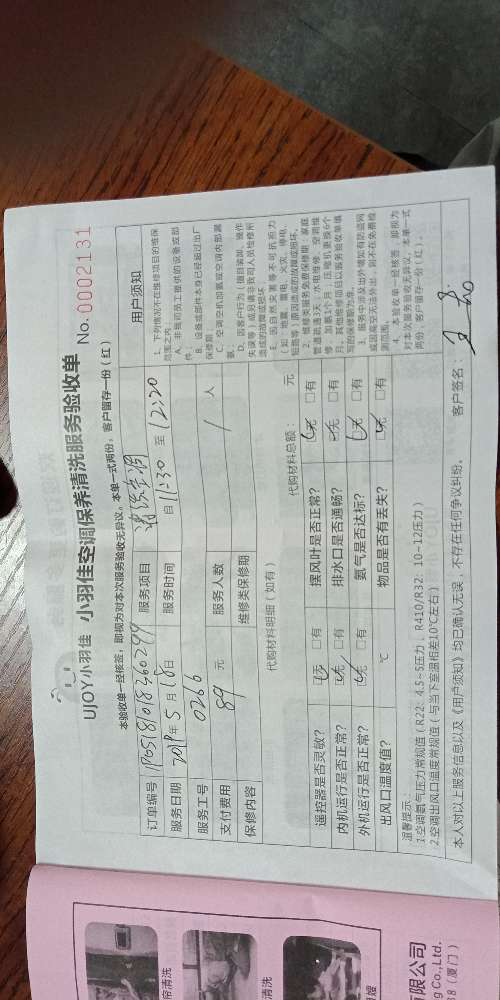 UJOY小羽佳 小羽佳空调保养清洗服务验收单 No.0002131
本验收单一经核签，即视为对本次服务验收无异议。本单一式两份，客户留存一份（红）
订单编号 服务项目 清洗空调
服务日期 2019年5月18日 服务时间 自 11:30 至 12:20
服务工号 0266
支付费用 89 元 服务人数 1 人
保修内容 维修类保修期
代购材料明细（如有） 代购材料总额： 元
遥控器是否灵敏？ 无 有 摆风叶是否正常？ 无 有
内机运行是否正常？ 无 有 排水口是否通畅？ 无 有
外机运行是否正常？ 无 有 氨气是否达标？ 无 有
出风口温度值？ ℃ 物品是否有丢失？ 无 有
用户须知
1、下列情况不在维修项目的维保
范围之内：
A、非我司员工提供的设备或部
件；
B、设备或部件本身已经超过出厂
保修期；
C、空调空机加氨或空调内部漏
氨。
造成的故障或损坏
E、因自然灾害等不可抗拒力
（如：地震、雷电、火灾、停电、
4、本验收单一经核签，即视为
对本次服务验收无异议，本单一式
两份，客户留存一份（红）。
温馨提示：
1.空调氨气压力常规值（R22：4.5-5压力，R410/R32：10-12压力）
2.空调出风口温度常规值（与当下室温相差10℃左右）
本人对以上服务信息以及《用户须知》均已确认无误，不存在任何争议纠纷。 客户签名：
清洗
有限公司
g Co.,Ltd.
8（厦门）